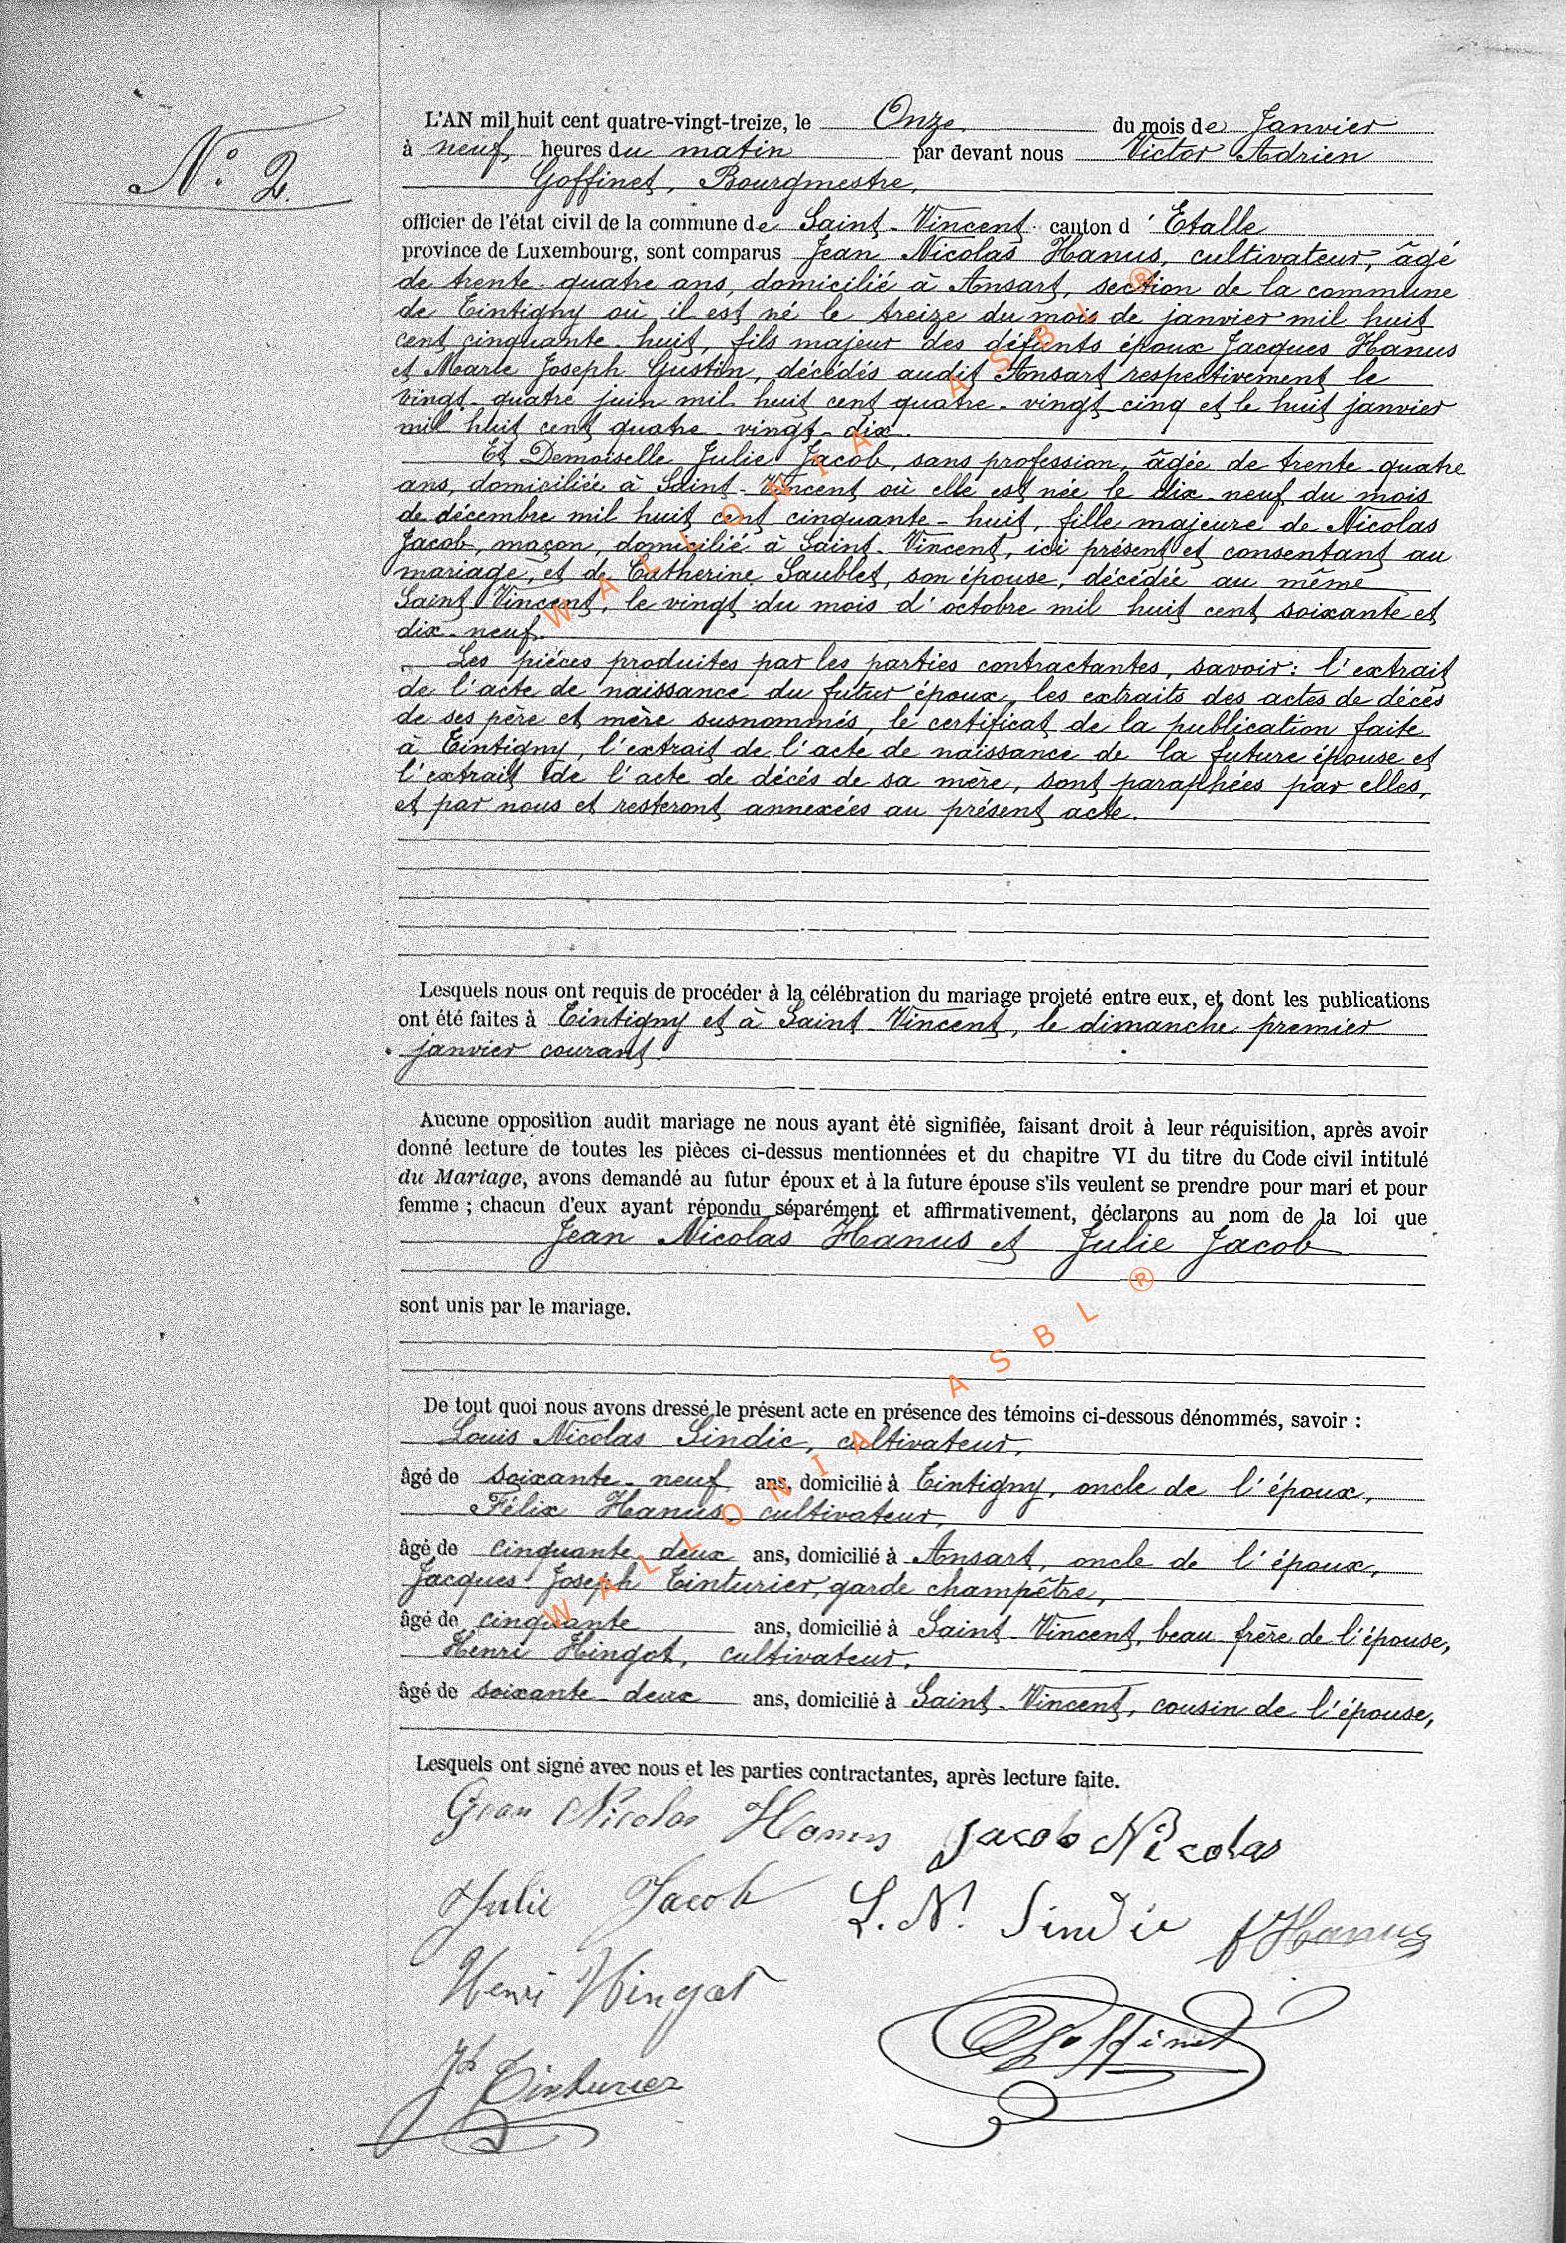 N.° 2.
L'AN mil huit cent quatre-vingt-treize, le Onze du mois de Janvier
à neuf heures du matin par devant nous Victor Adrien
Goffinet, Bourgmestre,
officier de l'état civil de la commune de Saint-Vincent canton d'Etalle
province de Luxembourg, sont comparus Jean Nicolas Hanus, cultivateur, âgé
de trente-quatre ans, domicilié à Ansart, section de la commune
de Tintigny où il est né le treize du mois de janvier mil huit
cent cinquante-huit, fils majeur des défunts époux Jacques Hanus
et Marie Joseph Gustin, décédés audit Ansart respectivement le
vingt-quatre juin mil huit cent quatre-vingt-cinq et le huit janvier
mil huit cent quatre-vingt-dix.
Et Demoiselle Julie Jacob, sans profession, âgée de trente-quatre
ans, domiciliée à Saint-Vincent où elle est née le dix-neuf du mois
de décembre mil huit cent cinquante-huit, fille majeure de Nicolas
Jacob, maçon, domicilié à Saint-Vincent, ici présent et consentant au
mariage, et de Catherine Saublet, son épouse, décédée au même
Saint Vincent, le vingt du mois d'octobre mil huit cent soixante et
dix-neuf.
Les pièces produites par les parties contractantes, savoir: l'extrait
de l'acte de naissance du futur époux, les extraits des actes de décès
de ses père et mère susnommés, le certificat de la publication faite
à Tintigny, l'extrait de l'acte de naissance de la future épouse et
l'extrait de l'acte de décès de sa mère, sont paraphées par elles,
et par nous et resteront annexées au présent acte.
Lesquels nous ont requis de procéder à la célébration du mariage projeté entre eux, et dont les publications
ont été faites à Tintigny et à Saint-Vincent, le dimanche premier
janvier courant.
Aucune opposition audit mariage ne nous ayant été signifiée, faisant droit à leur réquisition, après avoir
donné lecture de toutes les pièces ci-dessus mentionnées et du chapitre VI du titre du Code civil intitulé
du Mariage, avons demandé au futur époux et à la future épouse s'ils veulent se prendre pour mari et pour
femme ; chacun d'eux ayant répondu séparément et affirmativement, déclarons au nom de la loi que
Jean Nicolas Hanus et Julie Jacob
sont unis par le mariage.
De tout quoi nous avons dressé le présent acte en présence des témoins ci-dessous dénommés, savoir :
Louis Nicolas Sindic, cultivateur,
âgé de soixante-neuf ans, domicilié à Tintigny, oncle de l'époux,
Félix Hanus, cultivateur,
âgé de cinquante deux ans, domicilié à Ansart, oncle de l'époux,
Jacques Joseph Tinturier, garde champêtre,
âgé de cinquante ans, domicilié à Saint-Vincent, beau frère de l'épouse,
Henri Hingot, cultivateur,
âgé de soixante-deux ans, domicilié à Saint-Vincent, cousin de l'épouse,
Lesquels ont signé avec nous et les parties contractantes, après lecture faite.
Jean Nicolas Hanus Jacob Nicolas
Julie Jacob L. N. Sindic f Hanus
Henri Hingot
Goffinet
Jh Tinturier
WALLONIA ASBL ®
WALLONIA ASBL ®